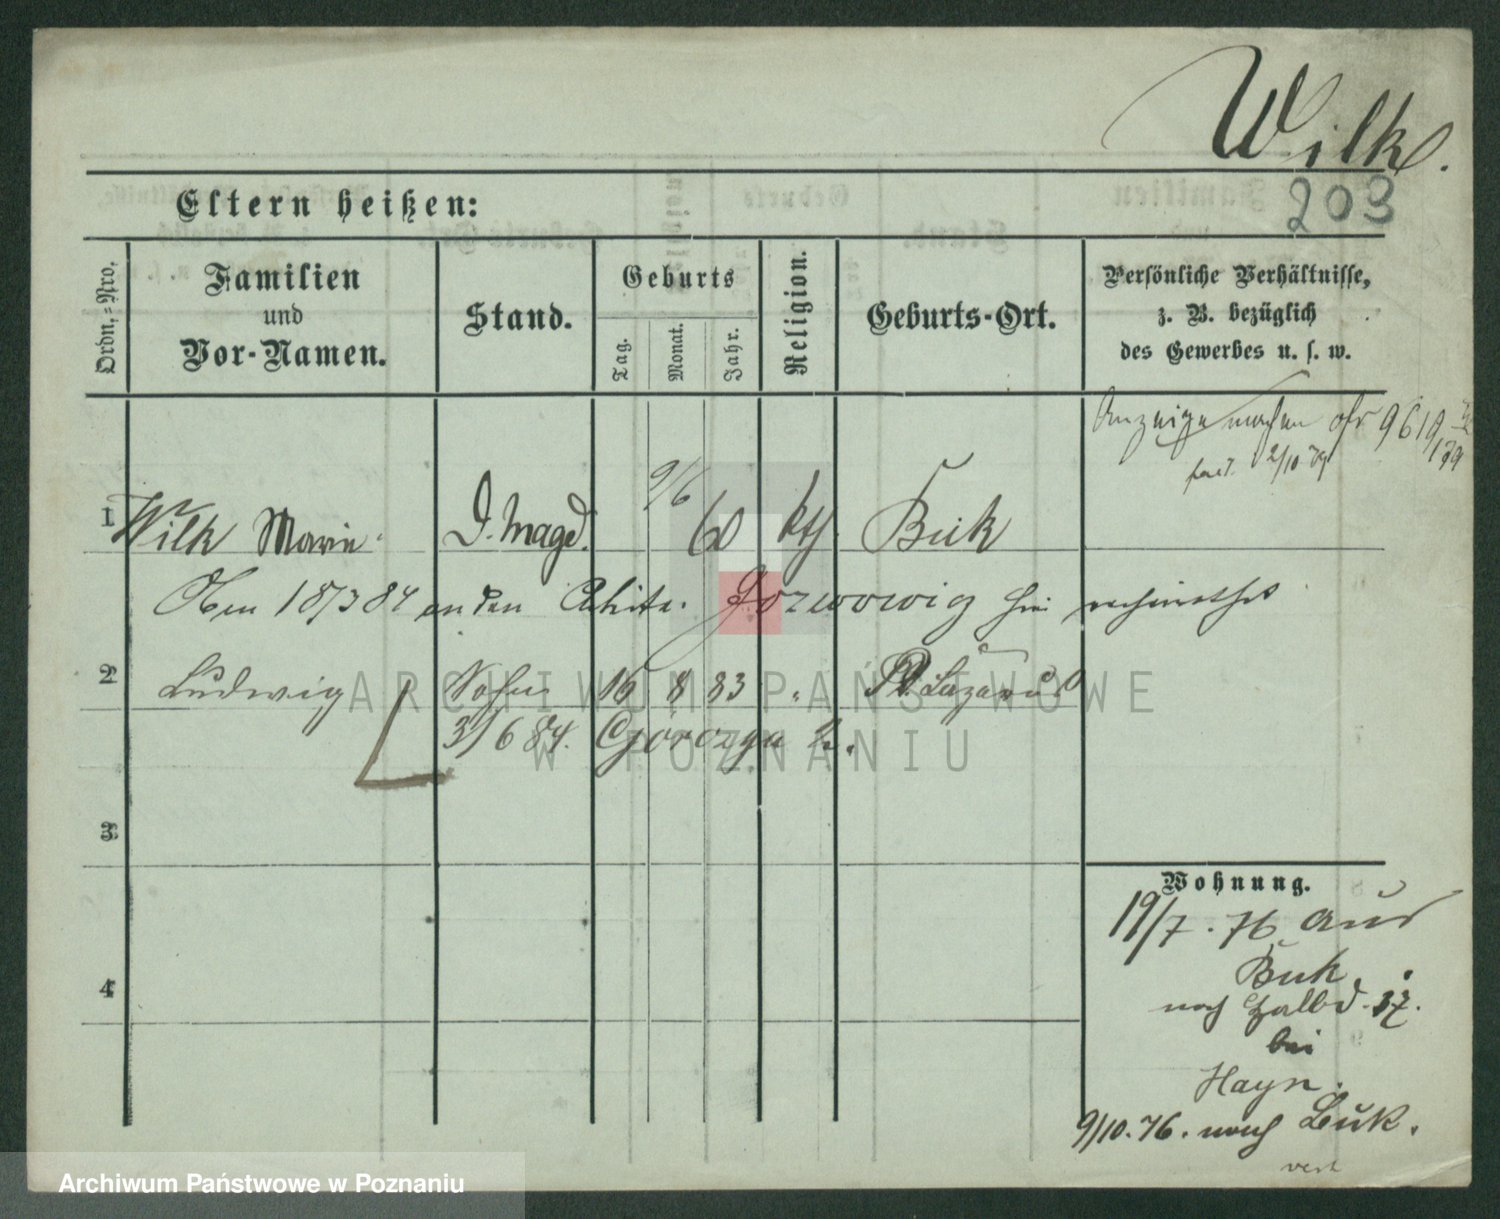 Wilk.
203
Eltern heißen:
Ordn.-Nro.
Familien
und
Vor-Namen.
Stand.
Geburts
Tag.
Monat.
Jahr.
Religion.
Geburts-Ort.
Persönliche Verhältnisse,
z. B. bezüglich
des Gewerbes u. s. w.
Anzeige machen 9619
2/10 79
1 Wilk Marie D. Magd. 9/6 60 kth Buk
18/3 84 an den hier
2 Ludwig Sohn 16 8 83 " St. Lazarus
3/6 84. Górczyn
3
4
Wohnung.
19/7. 76 aus
Buk
nach Halbd. 37.
bei
Hayn.
9/10. 76. nach Buk.
vert
ARCHIWUM PAŃSTWOWE
W POZNANIU
Archiwum Państwowe w Poznaniu